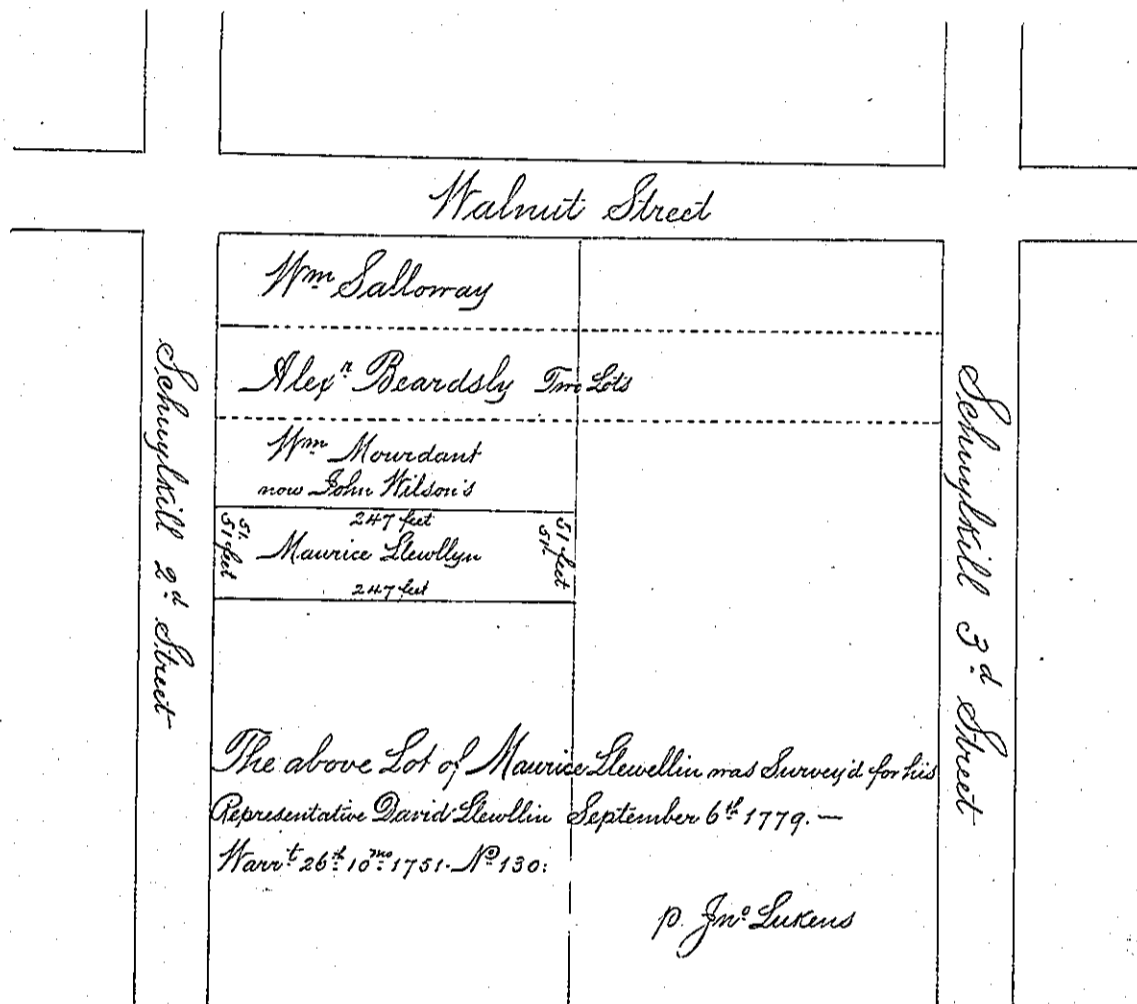 Walnut Street
Wm Salloway
Alexr Beardsly Two Lots
Wm Mourdant
now John Wilson's
247 feet
51.
51 feet
Maurice Llewllyn
51 feet
51.
247 feet
Schuylkill 2d Street
Schuylkill 3d Street
The above Lot of Maurice Llewellin was Survey'd for his
Representative David Llewllin September 6th 1779.—
Warrt 26th 10mo 1751. No 130:
p. Jno Lukens